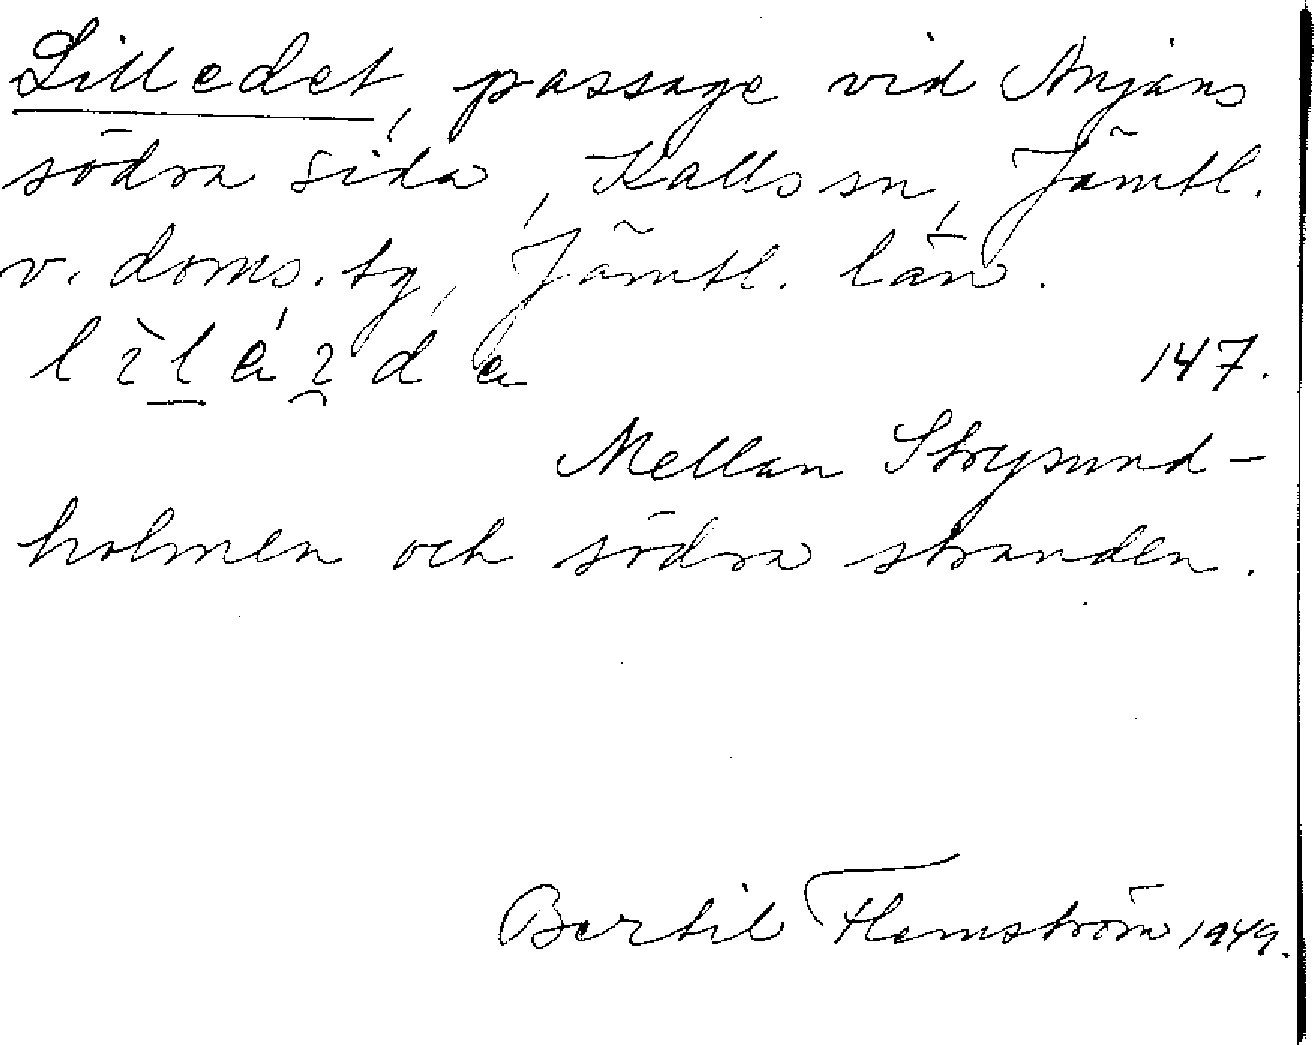 Lilledet, passage vid Anjans
södra sida, Kalls sn, Jämtl.
v. doms. tg, Jämtl. län.
147.
Mellan Strysund-
holmen och södra stranden.
Bertil Flemström 1949.